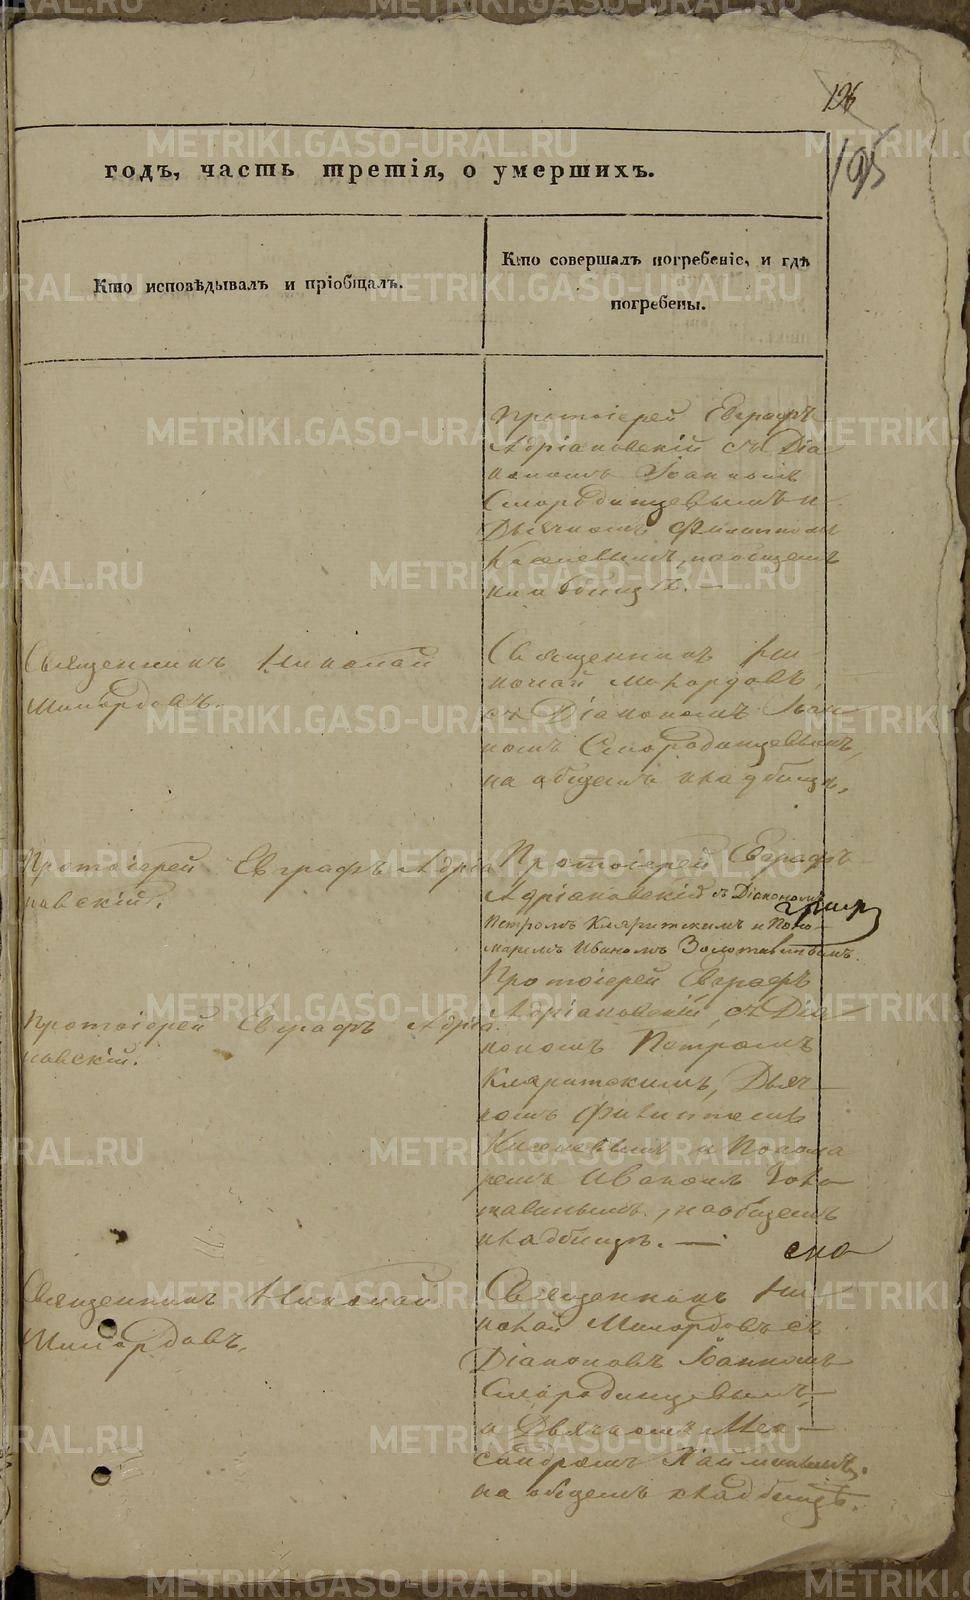 126
195
годъ, часть третія, о умершихъ.
Кто исповѣдывалъ и пріобщалъ.
Кто совершалъ погребеніе, и гдѣ
погребены.
Протоіерей Евграфъ
Адріановскій съ Діа
кономъ Іоанномъ
Смородинцевымъ и
Дьячкомъ Филиппом
на общемъ
кладбищѣ. —
Священникъ Николай
Священникъ Ни
колай
съ Діакономъ Іоан
номъ Смородинцевымъ,
на общемъ кладбищѣ,
Протоіерей Евграфъ Адріа
новскій.
Протоіерей Евграфъ
Адріановскій съ Діакономъ
Петромъ Кляритскимъ и Поно
маремъ Иваномъ
Протоіерей Евграфъ Адріа
новскій.
Протоіерей Евграфъ
Адріановскій, съ Діа
кономъ Петромъ
Кляритскимъ, Дьяч
комъ Филиппомъ
и Понома
ремъ Иваномъ
на общемъ
кладбищѣ. —
Священникъ Николай
Священникъ Ни
колай съ
Діакономъ Іоанномъ
Смородинцевымъ
и Дьячкомъ Алек
сандромъ
на общемъ кладбищѣ.
METRIKI.GASO-URAL.RU